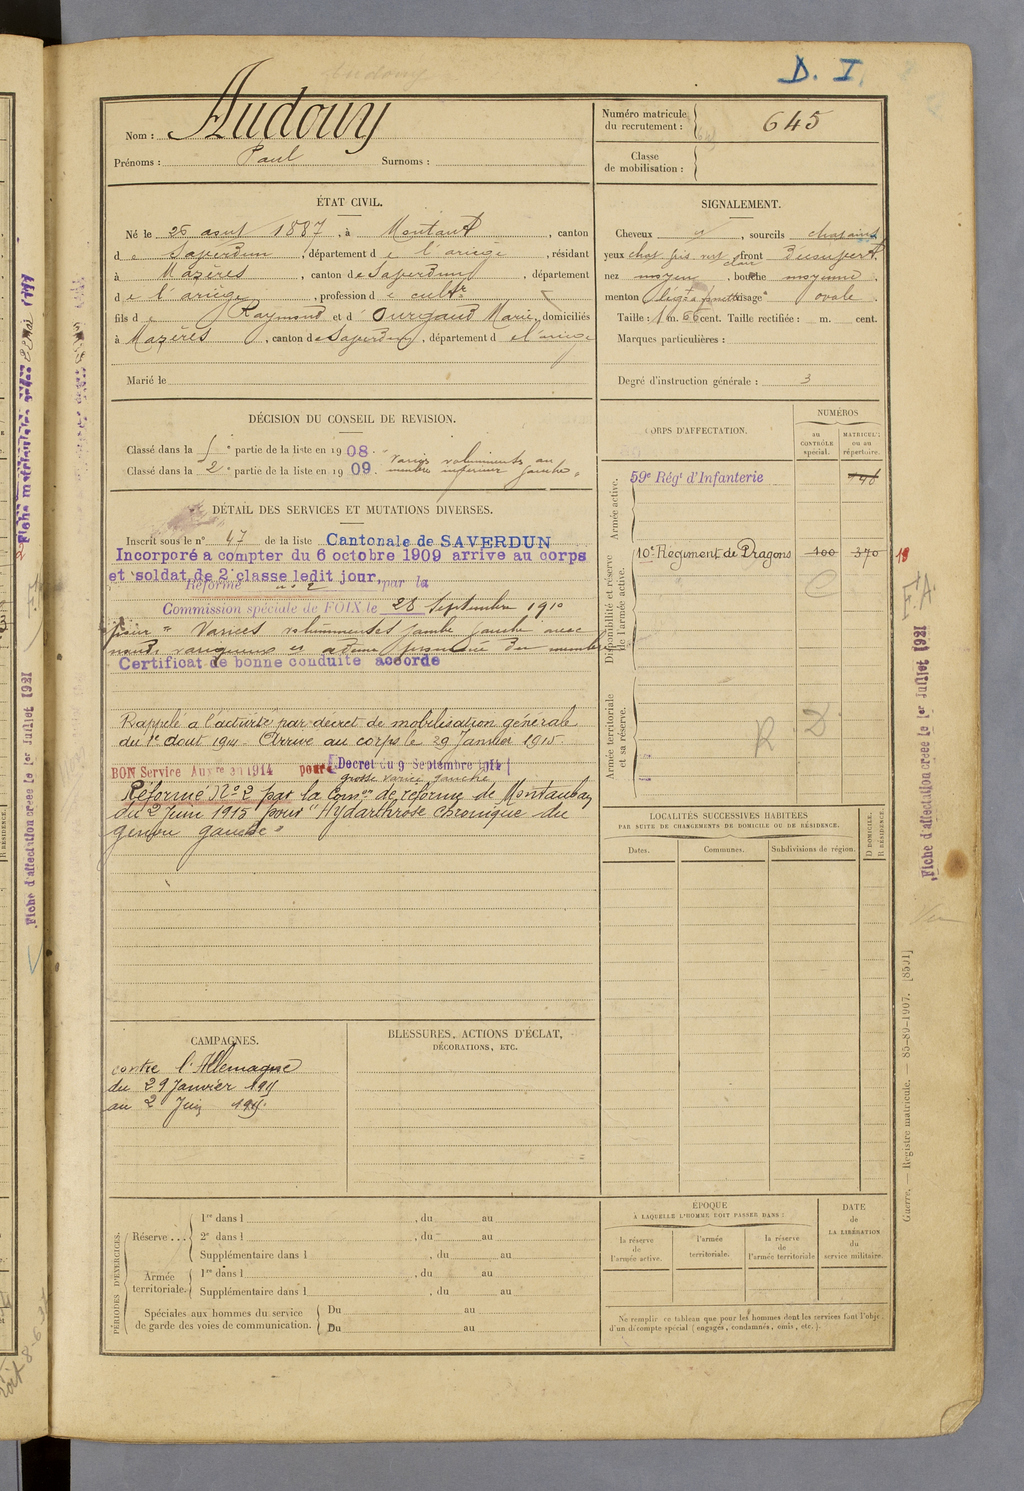 D. I.
Nom : Audouy
Prénoms : Paul Surnoms :
Numéro matricule du recrutement : 645
Classe de mobilisation :
ÉTAT CIVIL.
Né le 26 aout 1887, à Montaut, canton
de Saverdun, département de l'ariège, résidant
à Mazères, canton de Saverdun, département
de l'ariège, profession de cultr
fils de Raymond et d'Ourgaud Marie, domiciliés
à Mazères, canton de Saverdun, département de l'ariège
Marié le
SIGNALEMENT.
Cheveux , sourcils chatains
yeux chat gris clair front Découvert,
nez moyen, bouche moyenne
menton visage ovale
Taille : 1 m. 66 cent. Taille rectifiée : m. cent.
Marques particulières :
Degré d'instruction générale : 3
DÉCISION DU CONSEIL DE REVISION.
Classé dans la 5e partie de la liste en 1908.
Classé dans la 2e partie de la liste en 1909. Varices volumineuses au
membre inférieur gauche"
DÉTAIL DES SERVICES ET MUTATIONS DIVERSES.
Inscrit sous le n° 47 de la liste Cantonale de SAVERDUN
Incorporé a compter du 6 octobre 1909 arrivé au corps
et soldat de 2e classe ledit jour,
Réformé n° 2 par la
Commission spéciale de FOIX le 28 Septembre 1910
pour "Varices volumineuses jambe gauche avec
du membre
Certificat de bonne conduite accordé
Rappelé a l'activité par décret de mobilisation générale
du 1er Aout 1914. Arrivé au corps le 29 Janvier 1915.
BON Service Aux re en 1914 pour Décret du 9 Septembre 1914
grosse varice gauche
Réformé N° 2 par la Comon de réforme de Montauban
du 2 Juin 1915 pour "Hydarthrose chronique du
genou gauche"
CORPS D'AFFECTATION.
NUMÉROS
au CONTRÔLE spécial.
MATRICULE ou au répertoire.
Armée active.
59e Régt d'Infanterie
Disponibilité et réserve de l'armée active.
10e Regiment de Dragons 100 370
Armée territoriale et sa réserve.
R. D.
LOCALITÉS SUCCESSIVES HABITÉES
PAR SUITE DE CHANGEMENTS DE DOMICILE OU DE RÉSIDENCE.
Dates. Communes. Subdivisions de région.
D DOMICILE.
R RÉSIDENCE.
CAMPAGNES.
contre l'Allemagne
du 29 Janvier 1915
au 2 Juin 1915.
BLESSURES, ACTIONS D'ÉCLAT,
DÉCORATIONS, ETC.
PÉRIODES D'EXERCICES.
Réserve ...
1re dans l , du au
2e dans l , du au
Supplémentaire dans l , du au
Armée territoriale.
1re dans l , du au
Supplémentaire dans l , du au
Spéciales aux hommes du service
de garde des voies de communication.
Du au
Du au
ÉPOQUE
À LAQUELLE L'HOMME DOIT PASSER DANS :
la réserve de l'armée active.
l'armée territoriale.
la réserve de l'armée territoriale
DATE de LA LIBÉRATION du service militaire.
Ne remplir ce tableau que pour les hommes dont les services font l'objet
d'un décompte spécial (engagés, condamnés, omis, etc.).
Fiche d'affectation créée le 1er Juillet 1921
F.A.
Guerre. — Registre matricule. — 85-89-1907. [8591]
Fiche d'affectation créée le 1er Juillet 1921